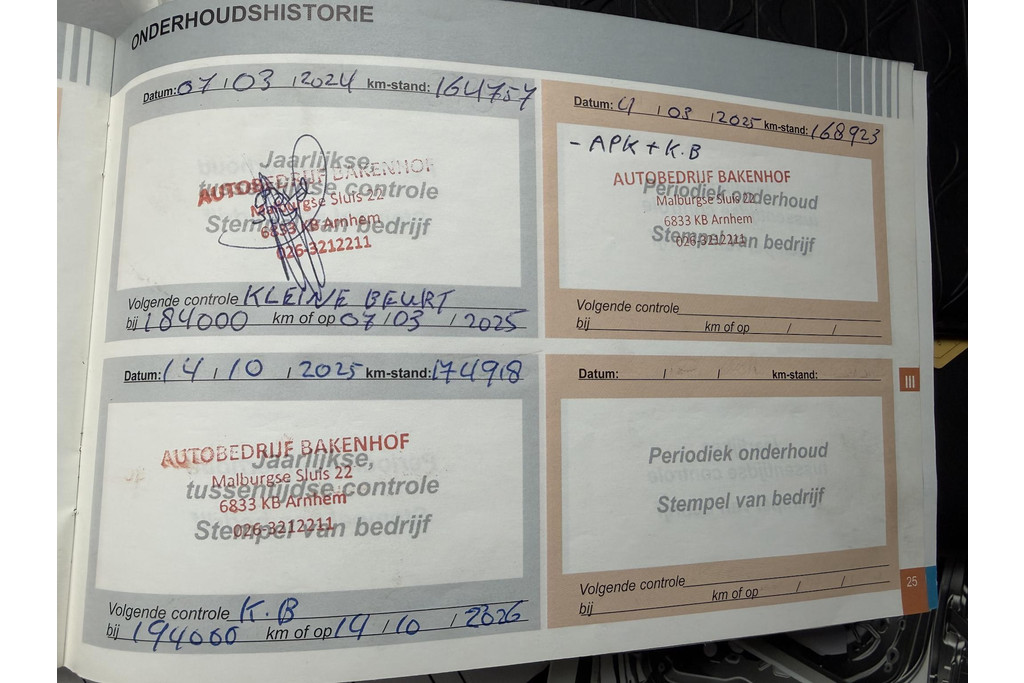 ONDERHOUDSHISTORIE
Datum: 07 / 03 / 2024 km-stand: 164757
Jaarlijkse,
tussentijdse controle
Stempel van bedrijf
AUTOBEDRIJF BAKENHOF
Malburgse Sluis 22
6833 KB Arnhem
026-3212211
Volgende controle KLEINE BEURT
bij 184000 km of op 07 / 03 / 2025
Datum: / 03 / 2025 km-stand: 168923
- APK + K.B
Periodiek onderhoud
Stempel van bedrijf
AUTOBEDRIJF BAKENHOF
Malburgse Sluis 22
6833 KB Arnhem
026-3212211
Volgende controle
bij km of op / /
Datum: 14 / 10 / 2025 km-stand: 174918
Jaarlijkse,
tussentijdse controle
Stempel van bedrijf
AUTOBEDRIJF BAKENHOF
Malburgse Sluis 22
6833 KB Arnhem
026-3212211
Volgende controle K.B
bij 194000 km of op 14 / 10 / 2026
Datum: / / km-stand:
Periodiek onderhoud
Stempel van bedrijf
Volgende controle
bij km of op / /
III
25